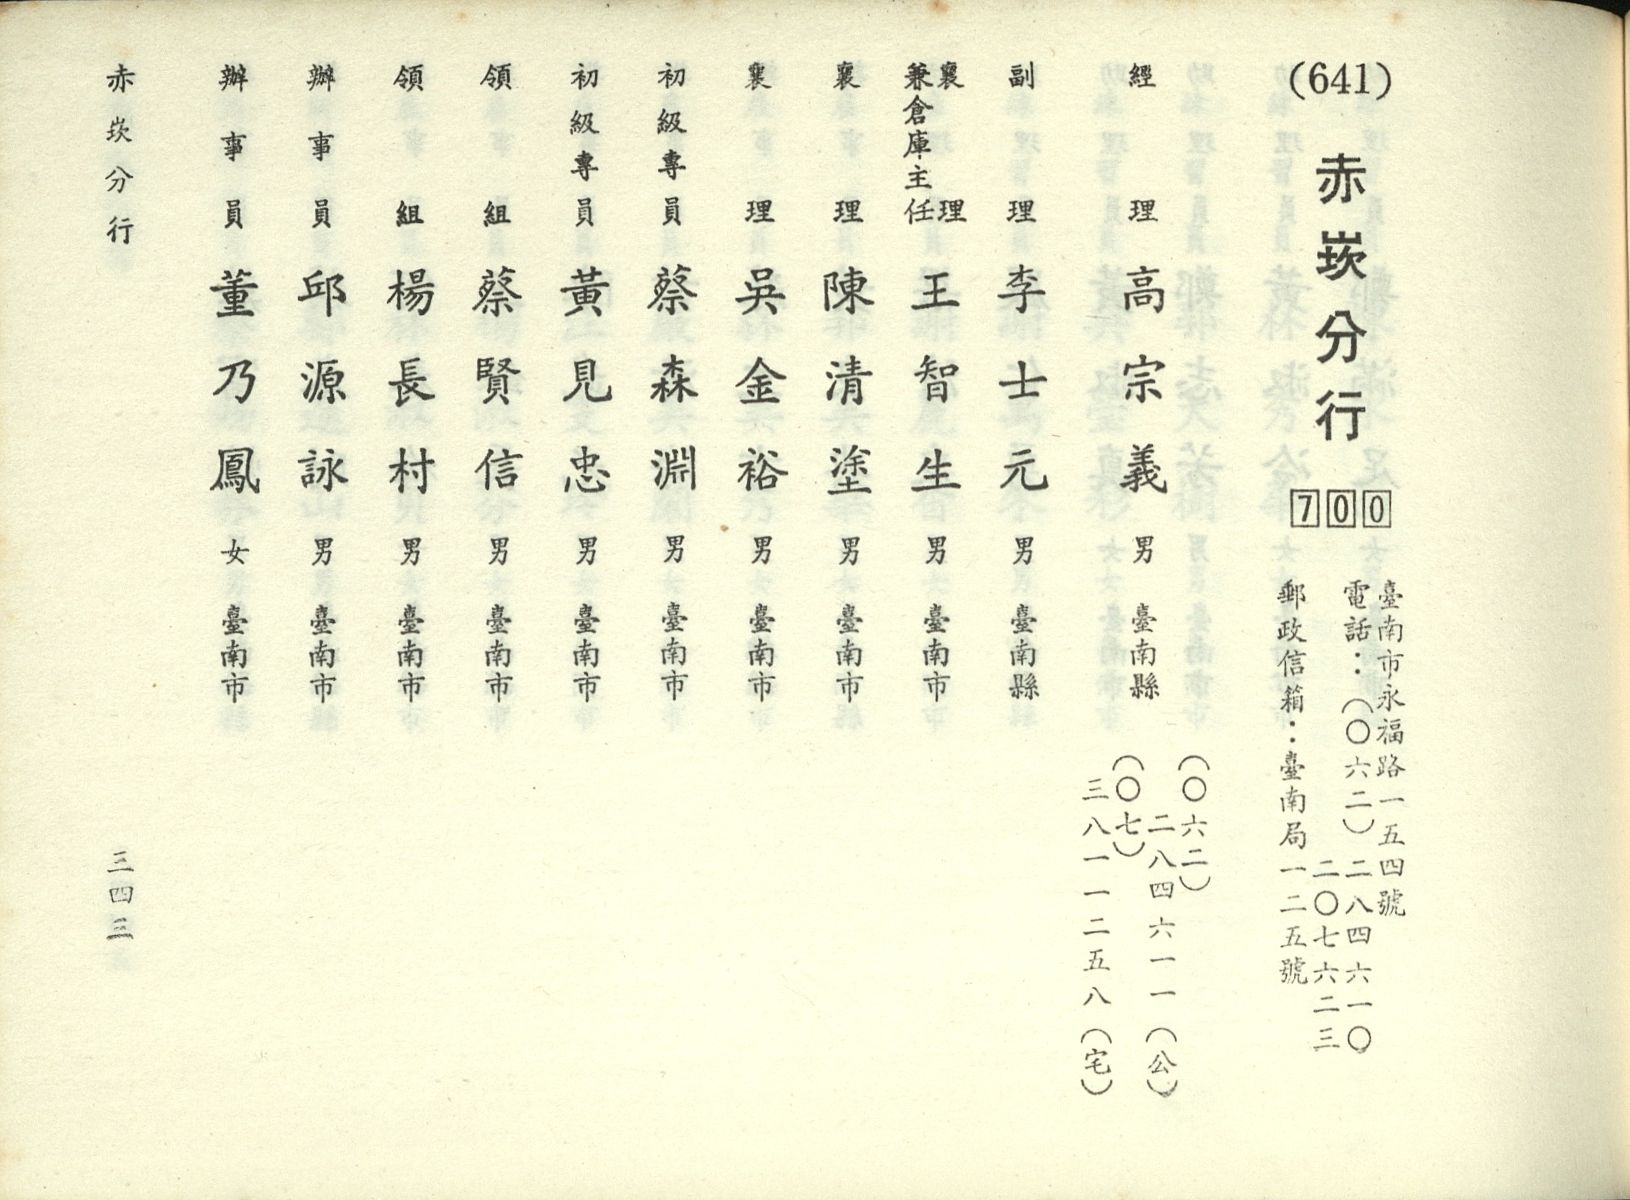 (641) 赤崁分行 700
臺南市永福路一五四號
電話：(〇六二)二八四六一〇
二〇七六二三
郵政信箱：臺南局一二五號
經理 高宗義 男 臺南縣
(〇六二)
二八四六一一(公)
(〇七)
三八一一二五八(宅)
副理 李士元 男 臺南縣
襄理
兼倉庫主任 王智生 男 臺南市
襄理 陳清塗 男 臺南市
襄理 吳金裕 男 臺南市
初級專員 蔡森淵 男 臺南市
初級專員 黃見忠 男 臺南市
領組 蔡賢信 男 臺南市
領組 楊長村 男 臺南市
辦事員 邱源詠 男 臺南市
辦事員 董乃鳳 女 臺南市
赤崁分行 三四三